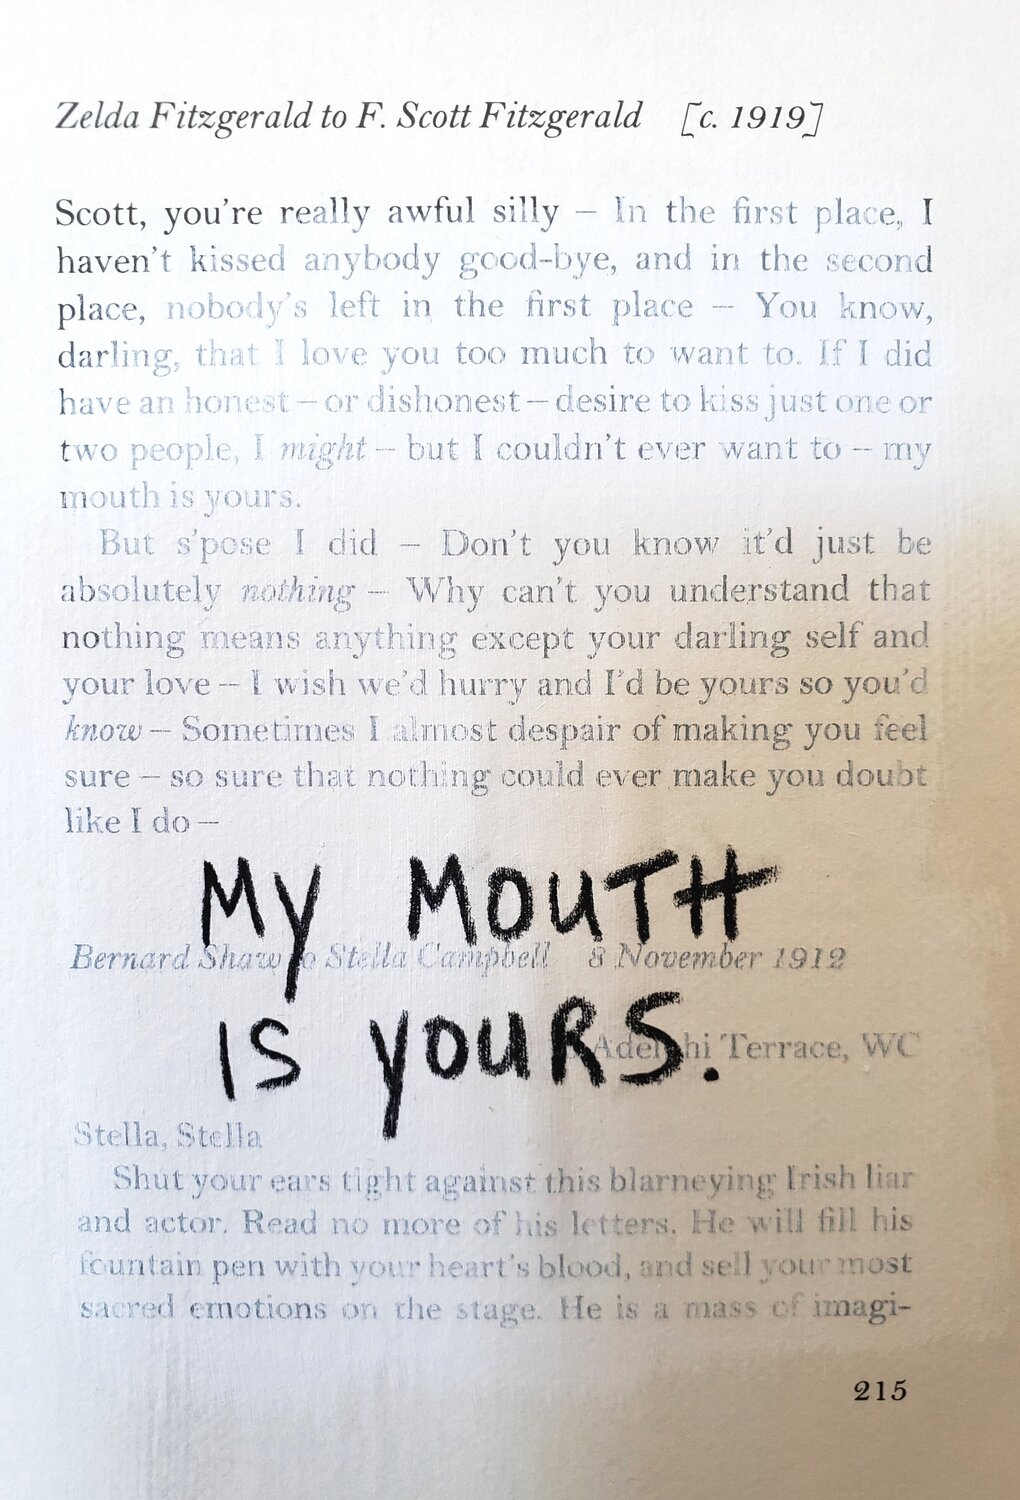 Zelda Fitzgerald to F. Scott Fitzgerald [c. 1919]
Scott, you're really awful silly – In the first place, I
haven't kissed anybody good-bye, and in the second
place, nobody's left in the first place – You know,
darling, that I love you too much to want to. If I did
have an honest – or dishonest – desire to kiss just one or
two people, I might – but I couldn't ever want to – my
mouth is yours.
But s'pose I did – Don't you know it'd just be
absolutely nothing – Why can't you understand that
nothing means anything except your darling self and
your love – I wish we'd hurry and I'd be yours so you'd
know – Sometimes I almost despair of making you feel
sure – so sure that nothing could ever make you doubt
like I do –
My MOUTH
Bernard Shaw to Stella Campbell 8 November 1912
IS yOURS.
Adelphi Terrace, WC
Stella, Stella
Shut your ears tight against this blarneying Irish liar
and actor. Read no more of his letters. He will fill his
fountain pen with your heart's blood, and sell your most
sacred emotions on the stage. He is a mass of imagi-
215